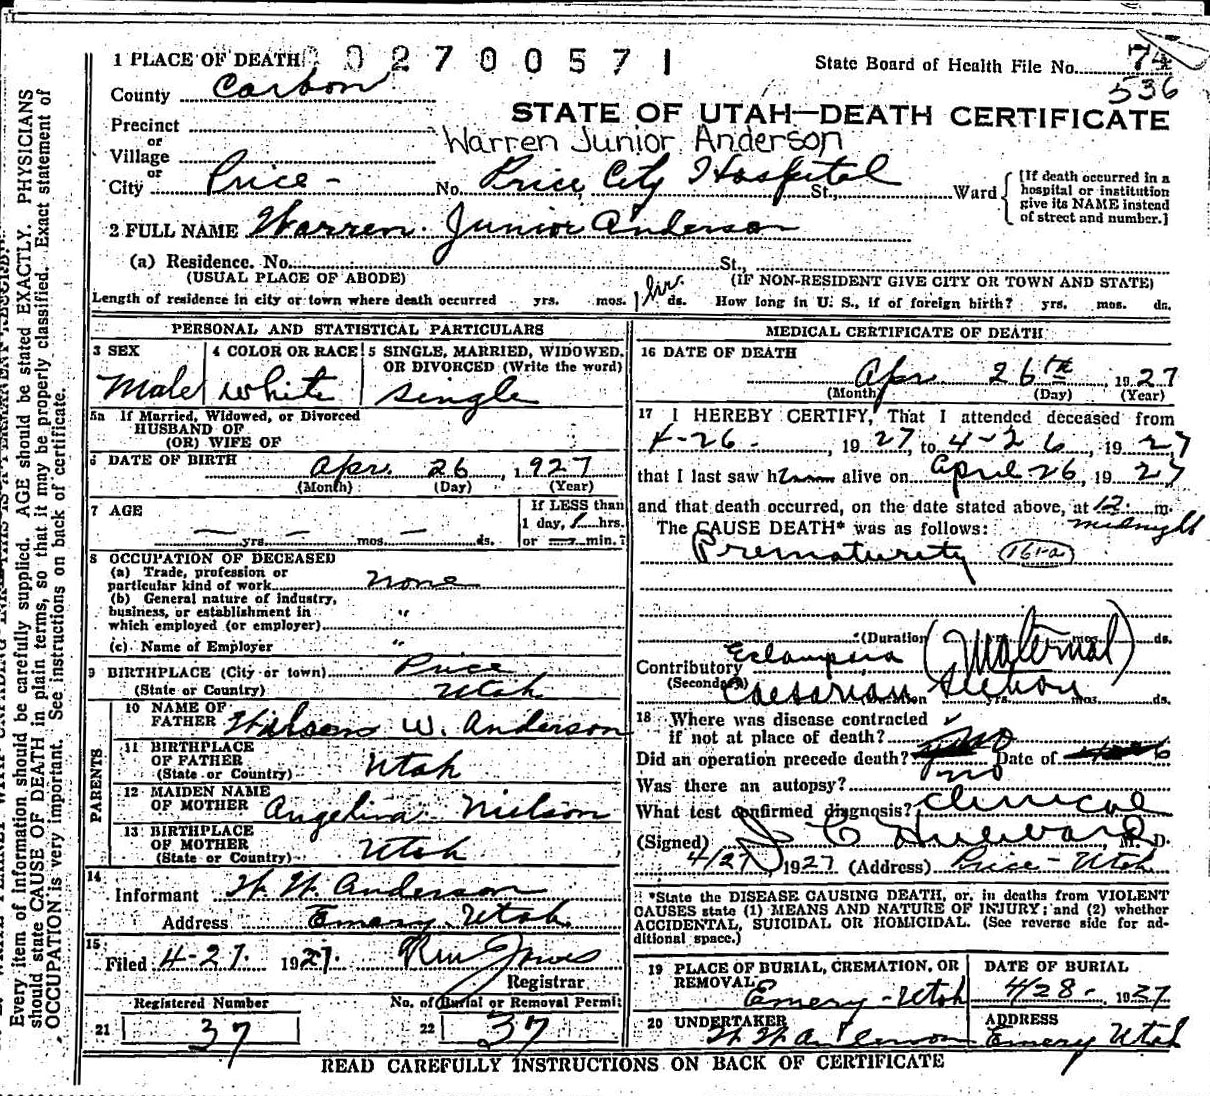 1 PLACE OF DEATH 0 0 2 7 0 0 5 7 1
State Board of Health File No. 74
536
County Carbon
STATE OF UTAH—DEATH CERTIFICATE
Precinct
or
Village
Warren Junior Anderson
or
City Price - No. Price City Hospital St., Ward
[If death occurred in a hospital or institution give its NAME instead of street and number.]
2 FULL NAME Warren Junior Anderson
(a) Residence. No. St.
(USUAL PLACE OF ABODE) (IF NON-RESIDENT GIVE CITY OR TOWN AND STATE)
Length of residence in city or town where death occurred yrs. mos. 1 hr. ds. How long in U. S., if of foreign birth? yrs. mos. ds.
PERSONAL AND STATISTICAL PARTICULARS
3 SEX 4 COLOR OR RACE 5 SINGLE, MARRIED, WIDOWED,
OR DIVORCED (Write the word)
Male white single
5a If Married, Widowed, or Divorced
HUSBAND OF
(OR) WIFE OF
6 DATE OF BIRTH Apr. 26, 1927
(Month) (Day) (Year)
7 AGE If LESS than
1 day, 1 hrs.
— yrs. — mos. — ds. or — min.?
8 OCCUPATION OF DECEASED
(a) Trade, profession or
particular kind of work none
(b) General nature of industry,
business, or establishment in "
which employed (or employer)
(c) Name of Employer "
9 BIRTHPLACE (City or town) Price
(State or Country) Utah
PARENTS
10 NAME OF
FATHER W. Anderson
11 BIRTHPLACE
OF FATHER Utah
(State or Country)
12 MAIDEN NAME
OF MOTHER Angelina Nielson
13 BIRTHPLACE
OF MOTHER Utah
(State or Country)
14
Informant W. W. Anderson
Address Emery Utah
15
Filed 4-27. 1927.
Registrar
Registered Number No. of Burial or Removal Permit
21 37 22 37
MEDICAL CERTIFICATE OF DEATH
16 DATE OF DEATH
Apr 26th, 1927
(Month) (Day) (Year)
17 I HEREBY CERTIFY, That I attended deceased from
4-26-, 1927, to 4-26, 1927
that I last saw him alive on April 26, 1927
and that death occurred, on the date stated above, at 12 m.
midnight
The CAUSE DEATH* was as follows:
Prematurity (161-a)
(Duration yrs. mos. ds.
Contributory Eclampsia (Maternal)
(Secondary) Caesarian Section yrs. mos. ds.
18 Where was disease contracted
if not at place of death?
Did an operation precede death? no Date of
Was there an autopsy? no
What test confirmed diagnosis? clinical
(Signed) J C Hubbard, M. D.
4/27 1927 (Address) Price - Utah
*State the DISEASE CAUSING DEATH, or, in deaths from VIOLENT
CAUSES state (1) MEANS AND NATURE OF INJURY; and (2) whether
ACCIDENTAL, SUICIDAL OR HOMICIDAL. (See reverse side for ad-
ditional space.)
19 PLACE OF BURIAL, CREMATION, OR
REMOVAL
Emery - Utah
DATE OF BURIAL
4/28- 1927
20 UNDERTAKER
W. W. Anderson
ADDRESS
Emery Utah
READ CAREFULLY INSTRUCTIONS ON BACK OF CERTIFICATE
Every item of information should be carefully supplied. AGE should be stated EXACTLY. PHYSICIANS
should state CAUSE OF DEATH in plain terms, so that it may be properly classified. Exact statement of
OCCUPATION is very important. See instructions on back of certificate.